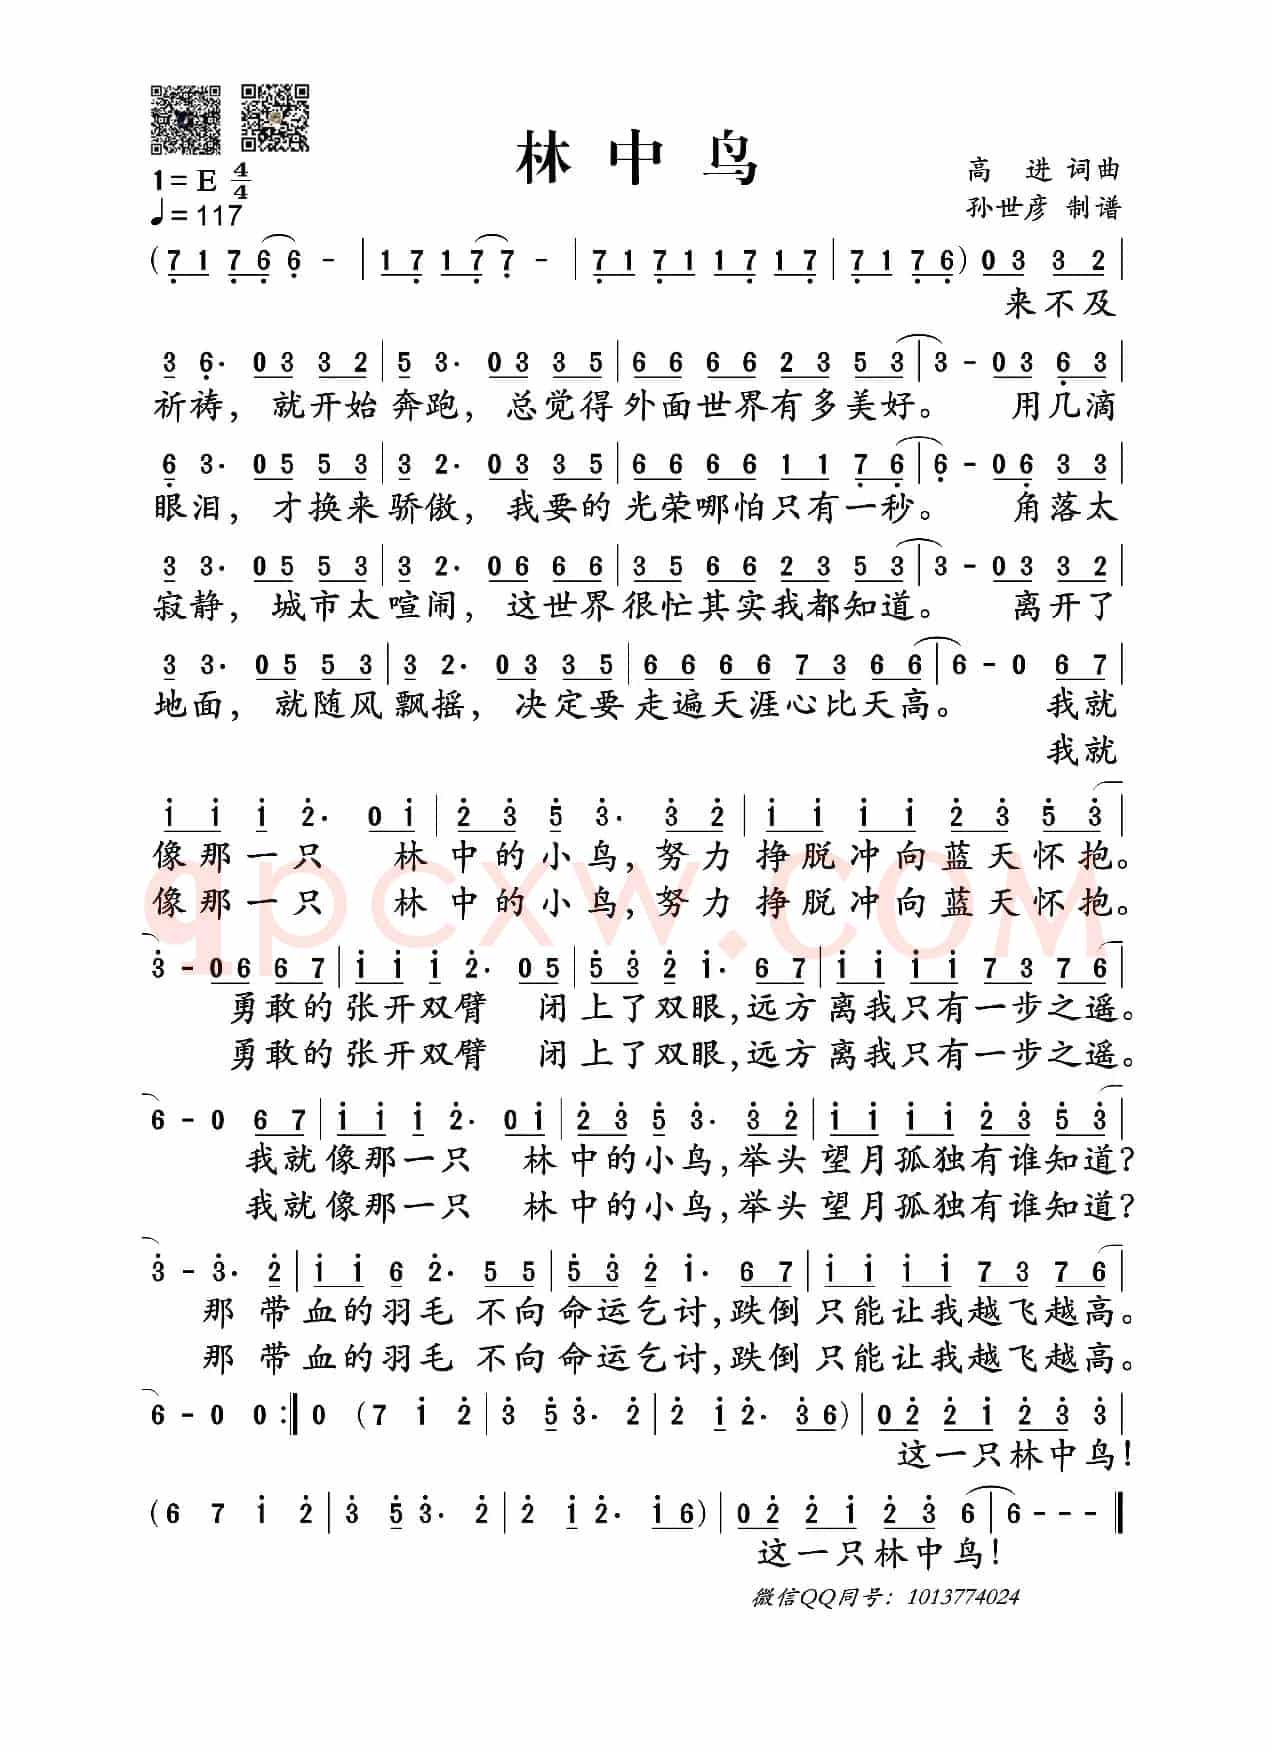 林中鸟
1=E 4/4
♩=117
高 进 词曲
孙世彦 制谱
(7 1 7 6 6 - | 1 7 1 7 7 - | 7 1 7 1 1 7 1 7 | 7 1 7 6) 0 3 3 2 |
来不及
3 6· 0 3 3 2 | 5 3· 0 3 3 5 | 6 6 6 6 2 3 5 3 | 3 - 0 3 6 3 |
祈祷，就开始奔跑，总觉得外面世界有多美好。 用几滴
6 3· 0 5 5 3 | 3 2· 0 3 3 5 | 6 6 6 6 1 1 7 6 | 6 - 0 6 3 3 |
眼泪，才换来骄傲，我要的光荣哪怕只有一秒。 角落太
3 3· 0 5 5 3 | 3 2· 0 6 6 6 | 3 5 6 6 2 3 5 3 | 3 - 0 3 3 2 |
寂静，城市太喧闹，这世界很忙其实我都知道。 离开了
3 3· 0 5 5 3 | 3 2· 0 3 3 5 | 6 6 6 6 7 3 6 6 | 6 - 0 6 7 |
地面，就随风飘摇，决定要走遍天涯心比天高。 我就
我就
1 1 1 2· 0 1 | 2 3 5 3· 3 2 | 1 1 1 1 2 3 5 3 |
像那一只 林中的小鸟，努力挣脱冲向蓝天怀抱。
像那一只 林中的小鸟，努力挣脱冲向蓝天怀抱。
3 - 0 6 6 7 | 1 1 1 2· 0 5 | 5 3 2 1· 6 7 | 1 1 1 1 7 3 7 6 |
勇敢的张开双臂 闭上了双眼，远方离我只有一步之遥。
勇敢的张开双臂 闭上了双眼，远方离我只有一步之遥。
6 - 0 6 7 | 1 1 1 2· 0 1 | 2 3 5 3· 3 2 | 1 1 1 1 2 3 5 3 |
我就像那一只 林中的小鸟，举头望月孤独有谁知道？
我就像那一只 林中的小鸟，举头望月孤独有谁知道？
3 - 3· 2 | 1 1 6 2· 5 5 | 5 3 2 1· 6 7 | 1 1 1 1 7 3 7 6 |
那 带血的羽毛 不向命运乞讨，跌倒只能让我越飞越高。
那 带血的羽毛 不向命运乞讨，跌倒只能让我越飞越高。
6 - 0 0 :| 0 (7 1 2 | 3 5 3· 2 | 2 1 2· 3 6) | 0 2 2 1 2 3 3 |
这一只林中鸟！
(6 7 1 2 | 3 5 3· 2 | 2 1 2· 1 6) | 0 2 2 1 2 3 6 | 6 - - - ‖
这一只林中鸟！
微信QQ同号：1013774024
qpcxw.COM